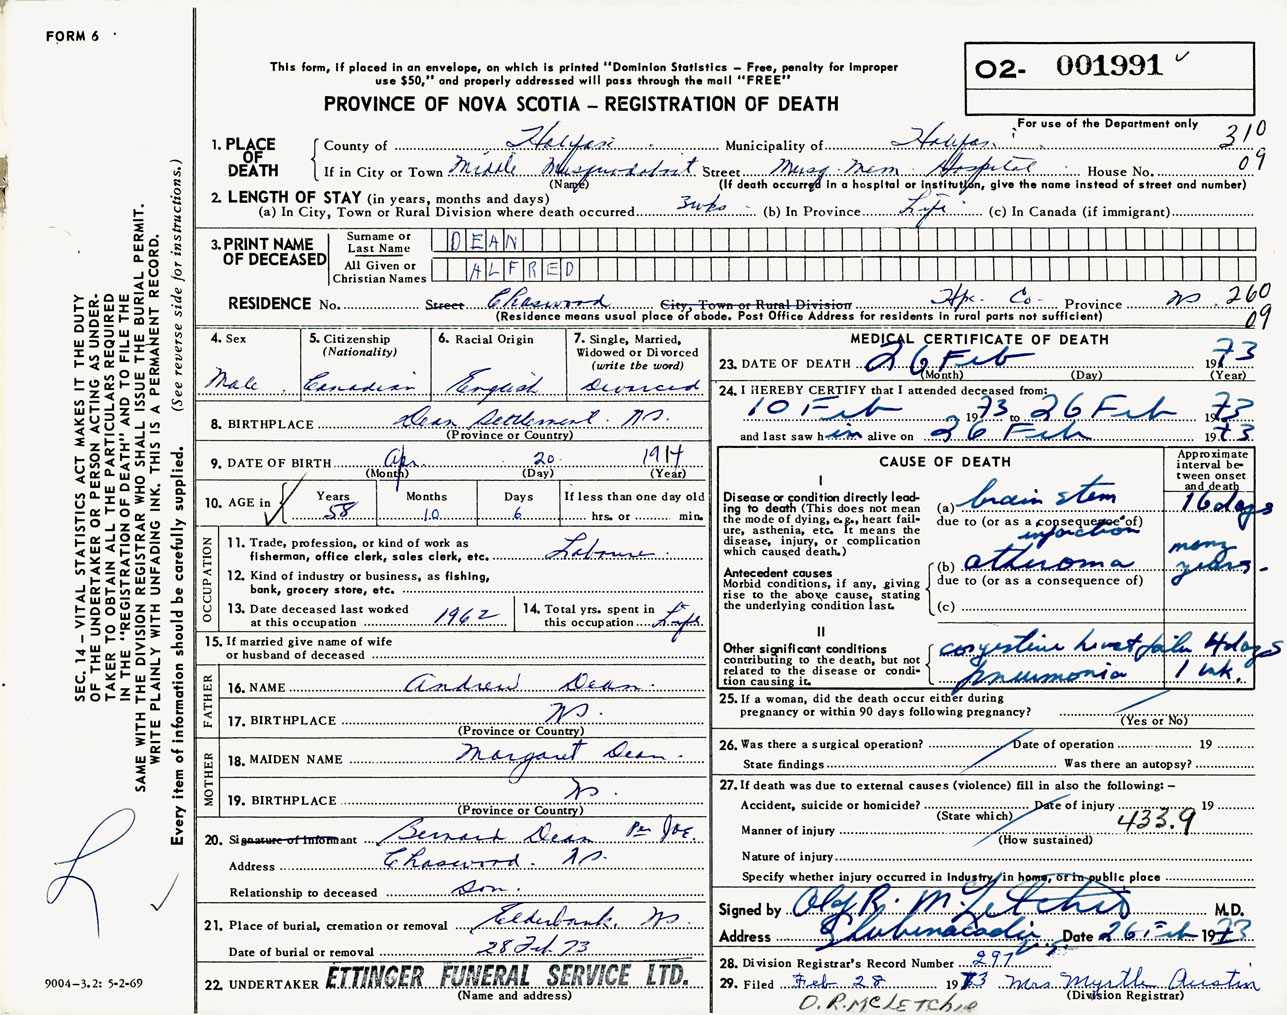 FORM 6
This form, if placed in an envelope, on which is printed "Dominion Statistics – Free, penalty for improper
use $50," and properly addressed will pass through the mail "FREE"
PROVINCE OF NOVA SCOTIA – REGISTRATION OF DEATH
O2- 001991
For use of the Department only
310
09
1. PLACE OF DEATH
County of Halifax Municipality of Halifax
If in City or Town Middle Musquodoboit Street Musq. Mem. Hospital House No.
(Name) (If death occurred in a hospital or institution, give the name instead of street and number)
2. LENGTH OF STAY (in years, months and days)
(a) In City, Town or Rural Division where death occurred 3 wks (b) In Province Life (c) In Canada (if immigrant)
3. PRINT NAME OF DECEASED
Surname or Last Name DEAN
All Given or Christian Names ALFRED
RESIDENCE No. Street Chaswood City, Town or Rural Division Hfx. Co. Province NS 260
(Residence means usual place of abode. Post Office Address for residents in rural parts not sufficient)
09
4. Sex
Male
5. Citizenship
(Nationality)
Canadian
6. Racial Origin
English
7. Single, Married,
Widowed or Divorced
(write the word)
Divorced
8. BIRTHPLACE Dean Settlement. NS.
(Province or Country)
9. DATE OF BIRTH Apr. 20 1914
(Month) (Day) (Year)
10. AGE in
Years Months Days If less than one day old
58 10 6 hrs. or min.
OCCUPATION
11. Trade, profession, or kind of work as
fisherman, office clerk, sales clerk, etc. Labourer
12. Kind of industry or business, as fishing,
bank, grocery store, etc.
13. Date deceased last worked
at this occupation 1962
14. Total yrs. spent in
this occupation Life
15. If married give name of wife
or husband of deceased
FATHER
16. NAME Andrew Dean.
17. BIRTHPLACE NS.
(Province or Country)
MOTHER
18. MAIDEN NAME Margaret Dean.
19. BIRTHPLACE NS.
(Province or Country)
20. Signature of Informant Bernard Dean Per Joe.
Address Chaswood. NS.
Relationship to deceased Son.
21. Place of burial, cremation or removal Elderbank, NS.
Date of burial or removal 28 Feb 73
22. UNDERTAKER ETTINGER FUNERAL SERVICE LTD.
(Name and address)
MEDICAL CERTIFICATE OF DEATH
23. DATE OF DEATH 26 Feb 1973
(Month) (Day) (Year)
24. I HEREBY CERTIFY that I attended deceased from:
10 Feb 1973 to 26 Feb 1973
and last saw him alive on 26 Feb 1973
CAUSE OF DEATH
Approximate
interval be-
tween onset
and death
I
Disease or condition directly lead-
ing to death (This does not mean
the mode of dying, e.g., heart fail-
ure, asthenia, etc. It means the
disease, injury, or complication
which caused death.)
(a) brain stem 16 days
due to (or as a consequence of)
infarction
Antecedent causes
Morbid conditions, if any, giving
rise to the above cause, stating
the underlying condition last.
(b) atheroma many years.
due to (or as a consequence of)
(c)
II
Other significant conditions
contributing to the death, but not
related to the disease or condi-
tion causing it.
congestive heart failure 4 days
pneumonia 1 wk.
25. If a woman, did the death occur either during
pregnancy or within 90 days following pregnancy?
(Yes or No)
26. Was there a surgical operation? Date of operation 19
State findings Was there an autopsy?
27. If death was due to external causes (violence) fill in also the following: –
Accident, suicide or homicide? Date of injury 19
(State which)
Manner of injury 433.9
(How sustained)
Nature of injury
Specify whether injury occurred in Industry, in home, or in public place
Signed by R. McLetchie M.D.
Address Shubenacadie Date 26 Feb 1973
28. Division Registrar's Record Number 297
29. Filed Feb 28 1973 Mrs Myrtle Austin
(Division Registrar)
O.R. MCLETCHIE
SEC. 14 – VITAL STATISTICS ACT MAKES IT THE DUTY
OF THE UNDERTAKER OR PERSON ACTING AS UNDER-
TAKER TO OBTAIN ALL THE PARTICULARS REQUIRED
IN THE "REGISTRATION OF DEATH" AND TO FILE THE
SAME WITH THE DIVISION REGISTRAR WHO SHALL ISSUE THE BURIAL PERMIT.
WRITE PLAINLY WITH UNFADING INK. THIS IS A PERMANENT RECORD.
Every item of information should be carefully supplied. (See reverse side for instructions.)
9004-3.2: 5-2-69